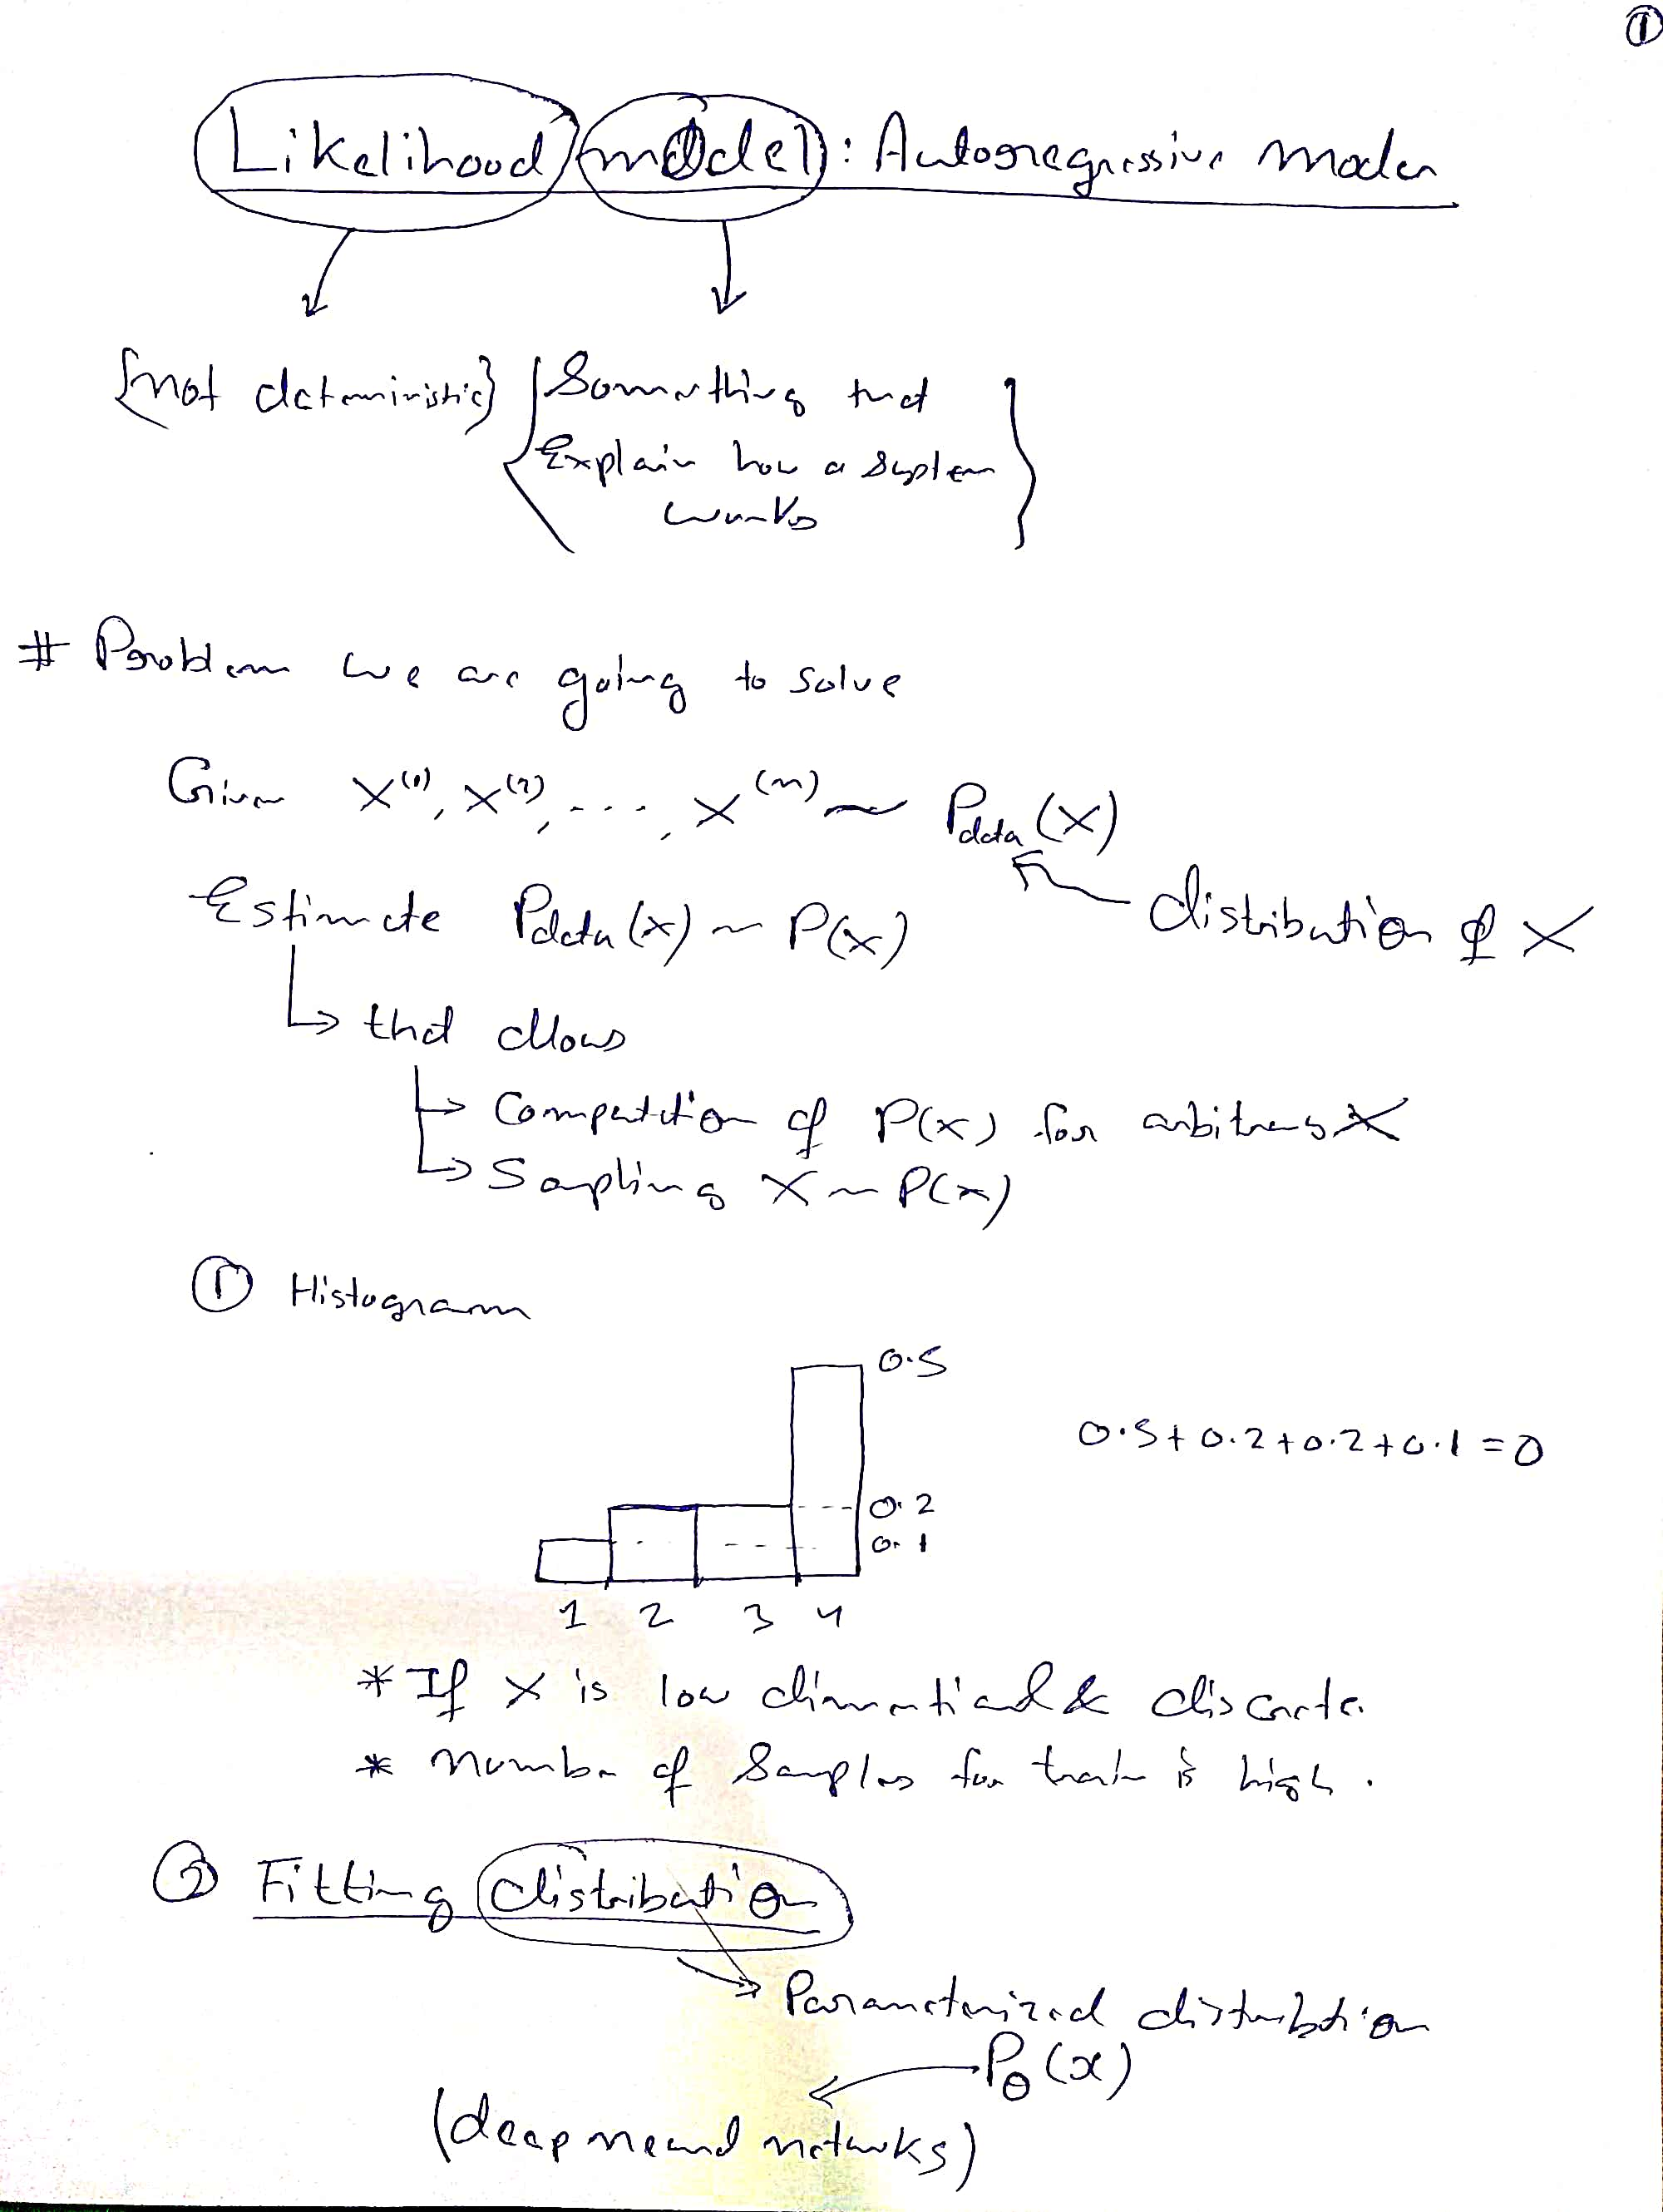 ①
Likelihood model: Autoregressive model
{not deterministic} {Something that
Explain how a system
works}
# Problem we are going to solve
Given X⁽¹⁾, X⁽²⁾, ..., X⁽ⁿ⁾ ~ Pdata(X)
distribution of X
Estimate Pdata(x) ~ P(x)
↳ that allows
↳ Computation of P(x) for arbitrary X
↳ Sampling X ~ P(x)
① Histogram
0.5
0.5+0.2+0.2+0.1=0
0.2
0.1
1 2 3 4
* If X is low dimentional & discrete.
* Number of Samples for train is high.
② Fitting distribution
Parameterized distribution
Pθ(x)
(deep neural networks)